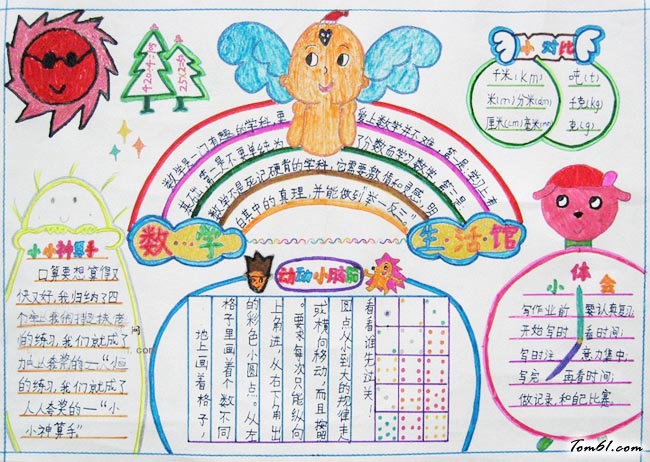 420÷4=105
25×2=50
小对比
千米(km)
米(m)分米(dm)
厘米(cm)毫米(mm)
吨(t)
千克(kg)
克(g)
数学是一门有趣的学科,更
爱上数学并不难,第一是学习上有
基础,第二是不要单纯为
了分数而学习数学,第三是
数学不是死记硬背的学科,它需要激情和灵感,明
白其中的真理,并能做到“举一反三”
数学
生活馆
小小神算手
口算要想算得又
快又好,我归纳了四
个字
的练习,我们就成了
人人夸奖的一“小
的练习,我们就成了
人人夸奖的一“小
小神算手”
动动小脑筋
地上画着格子,
格子里画着个数不同
的彩色小圆点。从左
上角进,从右下角出
。要求每次只能纵向
或横向移动,而且按照
圆点从小到大的规律走
看看谁先过关!
小体会
写作业前要认真复习
开始写时看时间;
写时注意力集中;
写完再看时间;
做记录和自己比赛。
Tom61.com